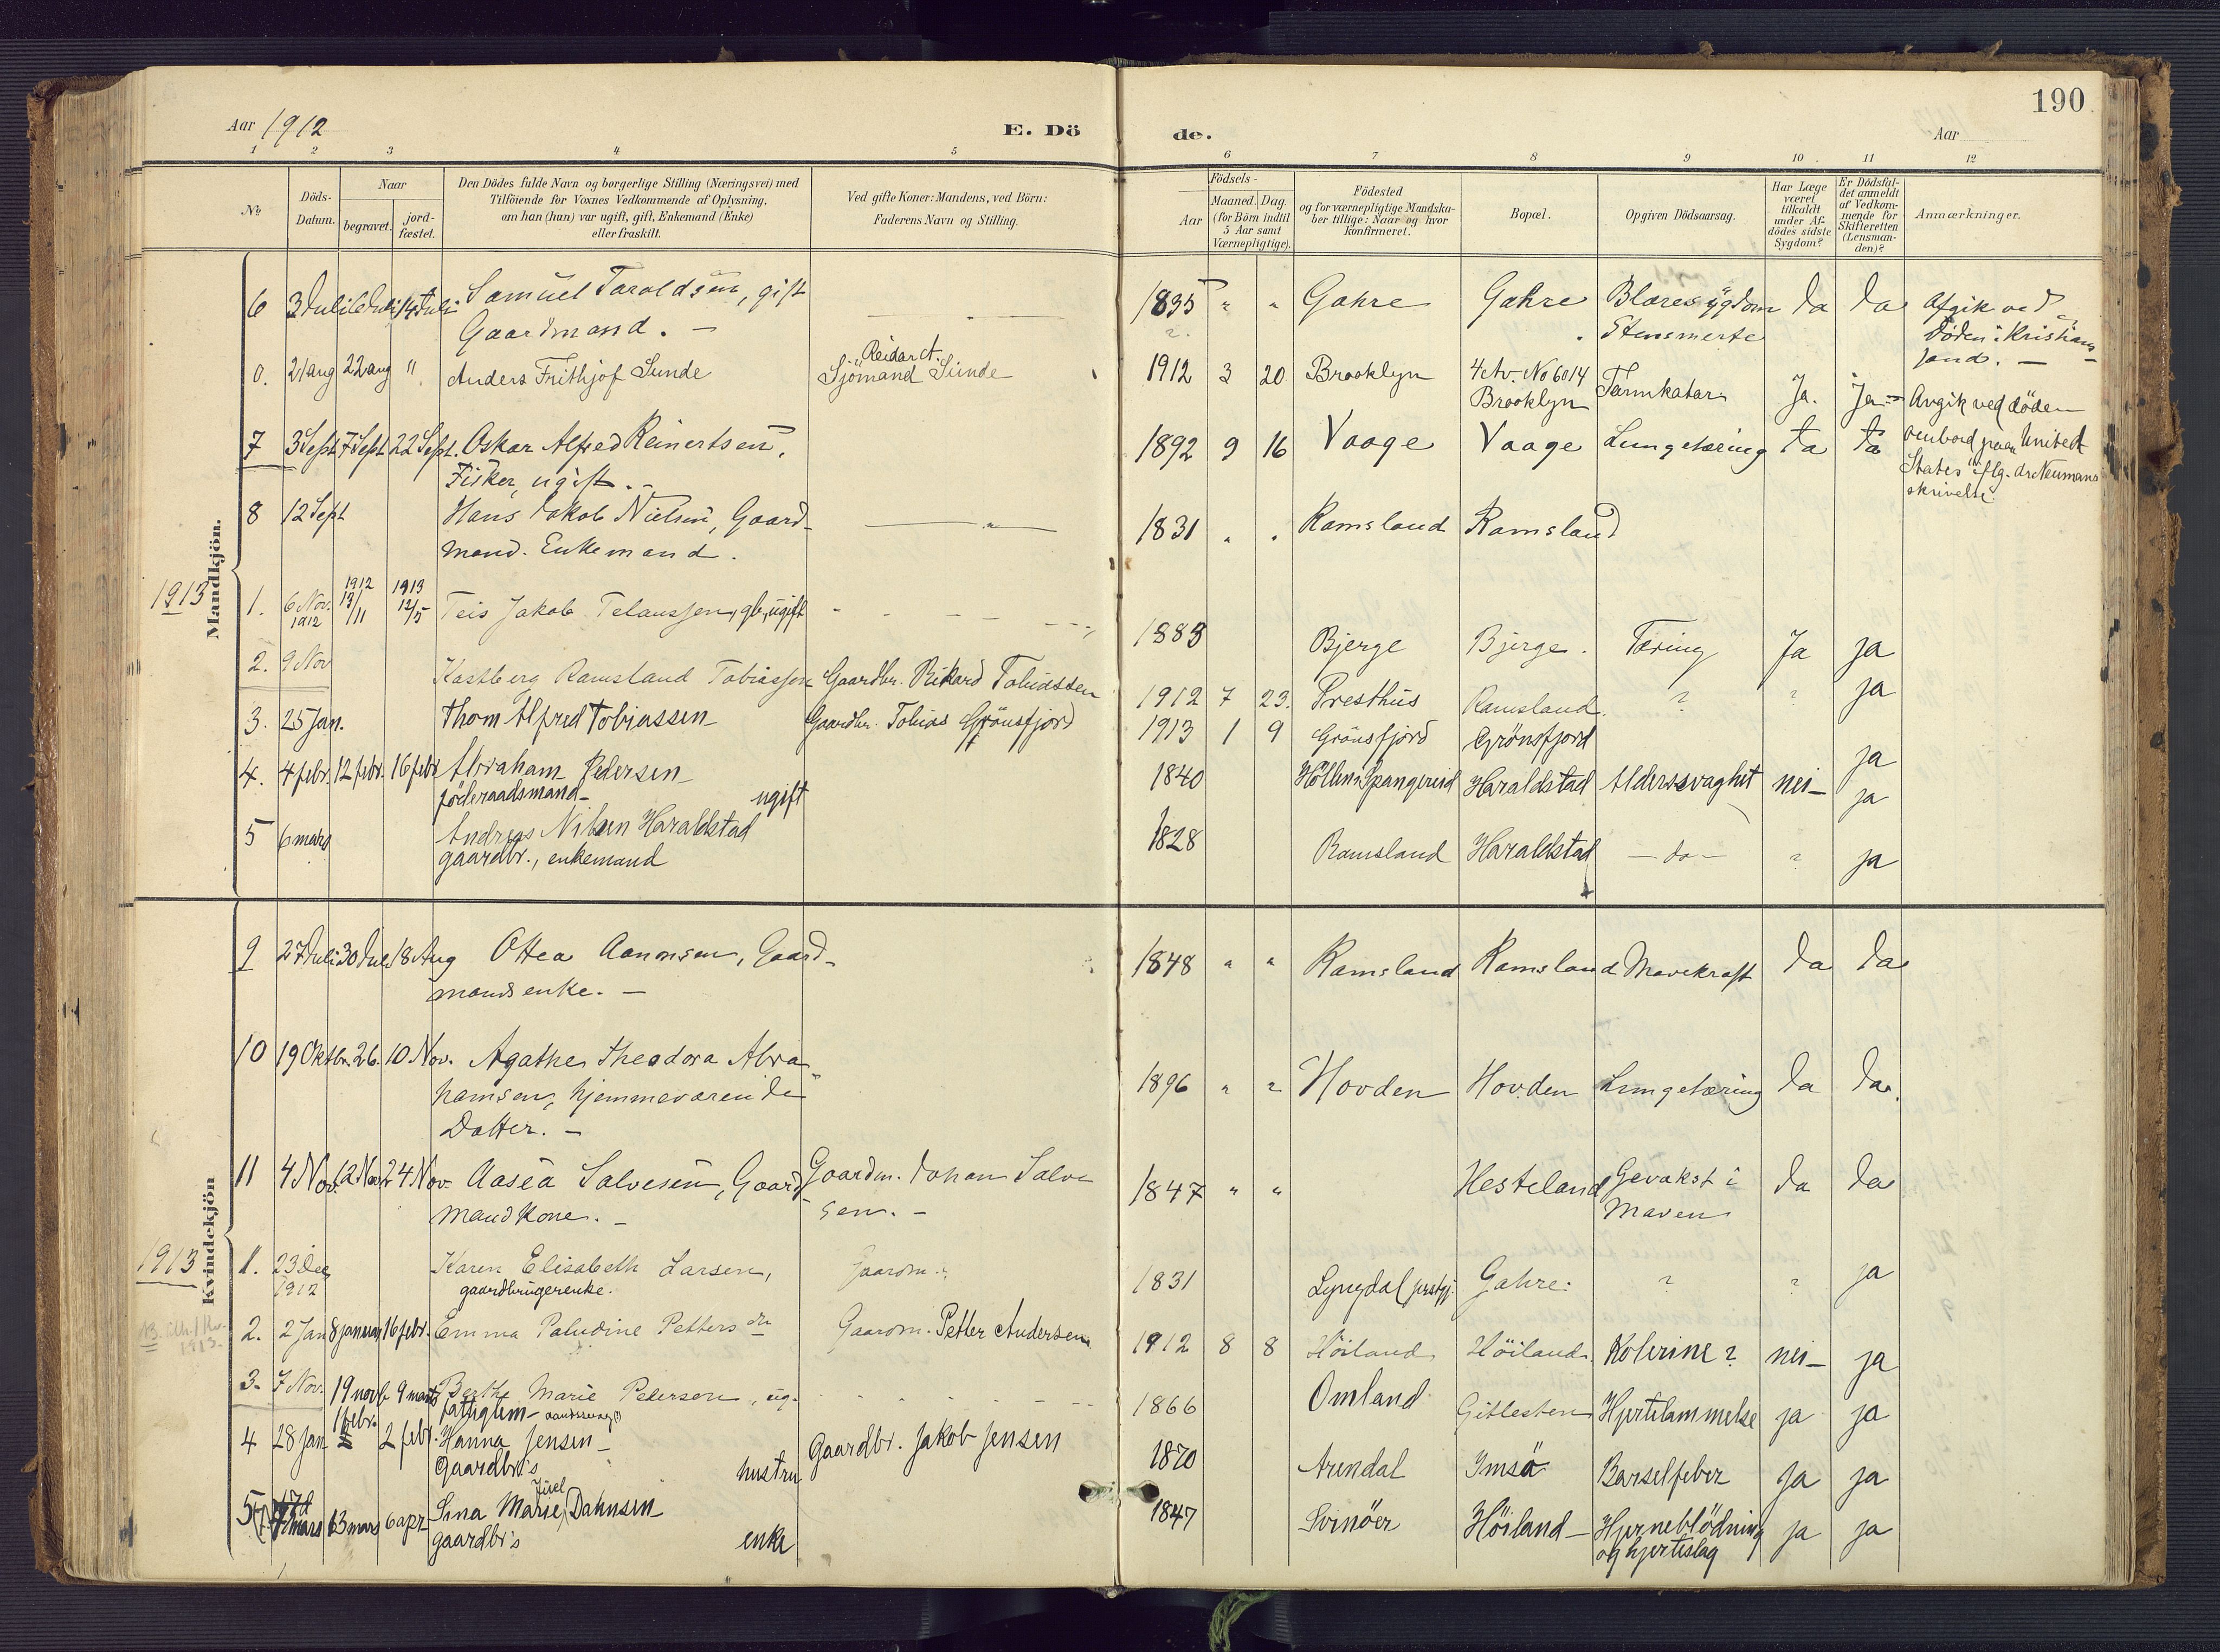 190
Aar 1912
E. Dö
de.
Aar
1 2 3 4 5 6 7 8 9 10 11 12
No
Döds-
Datum.
Naar
begravet.
jord-
fæstet.
Den Dödes fulde Navn og borgerlige Stilling (Næringsvei) med
Tilföiende for Voxnes Vedkommende af Oplysning,
om han (hun) var ugift, gift, Enkemand (Enke)
eller fraskilt.
Ved gifte Koner: Mandens, ved Börn:
Faderens Navn og Stilling.
Födsels-
Aar
Maaned. Dag.
(for Börn indtil
5 Aar samt
Værnepligtige).
Födested
og for værnepligtige Mandska-
ber tillige: Naar og hvor
konfirmeret.
Bopæl.
Opgiven Dödsaarsag.
Har Læge
været
tilkaldt
under Af-
dödes sidste
Sygdom?
Er Dödsfal-
det anmeldt
af Vedkom-
mende for
Skifteretten
(Lensman-
den)?
Anmærkninger.
Mandkjön.
6 3 Juli 14 Juli Samuel Taraldsen, gift 1835 " " Gahre Gahre Blæresygdom Ja Ja Afgik ved
Gaardmand. — Stensmerte Döden i Kristian-
sand. —
0. 21 aug 22 aug " Anders Frithjof Sunde Reidar A.
Sjömand Sunde 1912 3 20 Brooklyn 4 Av. No 6014
Brooklyn Tarmkatar Ja. Ja = Avgik ved döden
ombord paa United
States iflg. dr Neumans
skrivelse.
7 3 Sept 7 Sept 22 Sept. Oskar Alfred Reinertsen, 1892 9 16 Vaage Vaage Lungetæring Ja Ja
Fisker, ugift. —
8 12 Sept Hans Jakob Nielsen, Gaard- — " — 1831 " " Ramsland Ramsland
mand. Enkemand.
1913
1. 6 Nov. 1912 1912 13/11 1913 12/5 Teis Jakob Telaussen, gb, ugift 1883 Bjerge Bjerge. Tæring Ja ja
2. 9 Nov Kastberg Ramsland Tobiassen Gaardbr. Rikard Tobiassen 1912 7 23. Presthus Ramsland. ? ? ja
3. 25 Jan. Thom Alfred Tobiassen Gaardbr. Tobias Grönsfjord 1913 1 9 Grönsfjord Grönsfjord ja
4. 4 febr. 12 febr. 16 febr Abraham Pedersen 1840 Höllen Spangereid Haraldstad Alderssvaghet nei — ja
föderaadsmand — ugift
5 6 mars Andreas Nilsen Haraldstad 1828 Ramsland Haraldstad — do — ? ja
gaardbr., enkemand
Kvindekjön
9 27 Juli 30 Juli 18 Aug Ottea Aanonsen, Gaard- 1848 " " Ramsland Ramsland Mavekræft Ja Ja
mandsenke. —
10 19 Oktbr. 26. 10 Nov. Agathe Theodora Abra- 1896 " " Hovden Hovden Lungetæring Ja Ja.
hamsen, hjemmeværende
Datter. —
11 4 Nov. 12 Nov 24 Nov. Aasea Salvesen, Gaard- Gaardm. Johan Salve 1847 " " Hesteland Gevækst i Ja Ja
mandkone. — sen. — Maven
1913
1. 23 Dec 1912 Karen Elisabeth Larsen, Gaardm. 1831 Lyngdal prstgj. Gahre. ? ? ja
gaardbrugerenke.
2. 2 Jan 8 januar 16 febr. Emma Paludine Petters dtr Gaardm. Petter Andersen 1912 8 8 Höiland Höiland Kolerine? nei — ja
3. 7 Nov. 19 novb 9 marts Berthe Marie Pedersen, ug. 1866 Omland Gitlesten Hjertelammelse ja ja
fattiglem — aandssvag (?)
4 28 Jan 1 febr. 2 febr. Hanna Jensen — Gaardbr. Jakob Jensen 1870 Arendal Imsö Barselfeber Ja ja
Gaardbr's hustru
5 mars 13 mars 6 apr. Sina Marie Juel Dahnsen 1847 Svinöer Höiland — Hjerneblödning ja ja
gaardbr's enke og hjerteslag